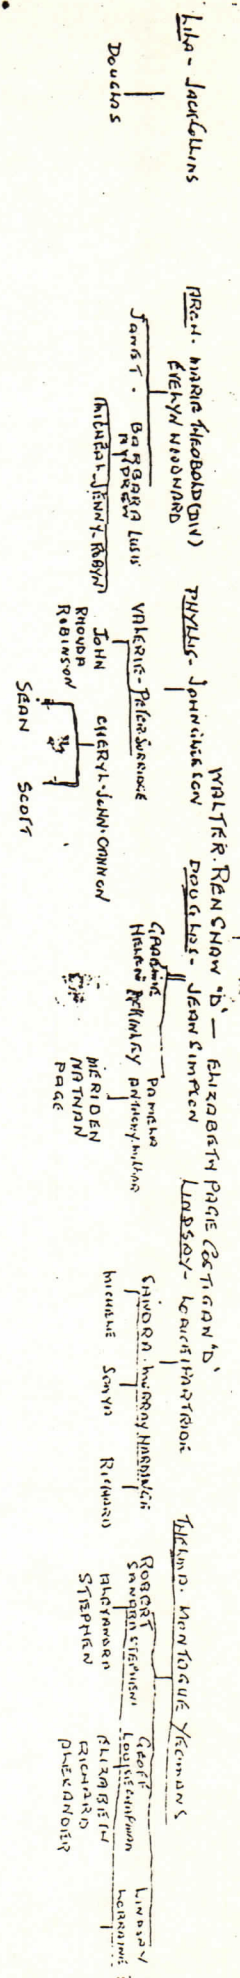 WALTER. RENSHAW "D" - ELIZABETH PAGE COSTIGAN "D"
LILA - JACK COLLINS
DOUGLAS
ARCH. MARIE THEOBOLD (DIV)
EVELYN WOODWARD
JANET. BARBARA
ANDREW
MICHEAL. JENNY. ROBYN
PHYLLIS- JOHN
VALERIE- PETER. SURRIDGE
JOHN
RHONDA
ROBINSON
CHERYL. JOHN. CANNON
SEAN SCOTT
DOUGLAS- JEAN SIMPSON
GRAEME
HELEN MCKINLEY
PAMELA
ANTHONY. MILLAR
MERIDEN
NATHAN
PAGE
LINDSAY-
SANDRA. MURRAY. HARDINGE
MICHELLE SONYA RICHARD
THELMA. MONTOGUE YEOMANS
ROBERT
SANDRA STEPHENS
ALEXANDRA
STEPHEN
GEOFF
LOUISE CHAPMAN
ELIZABETH
RICHARD
ALEXANDER
LINDSAY
LORRAINE